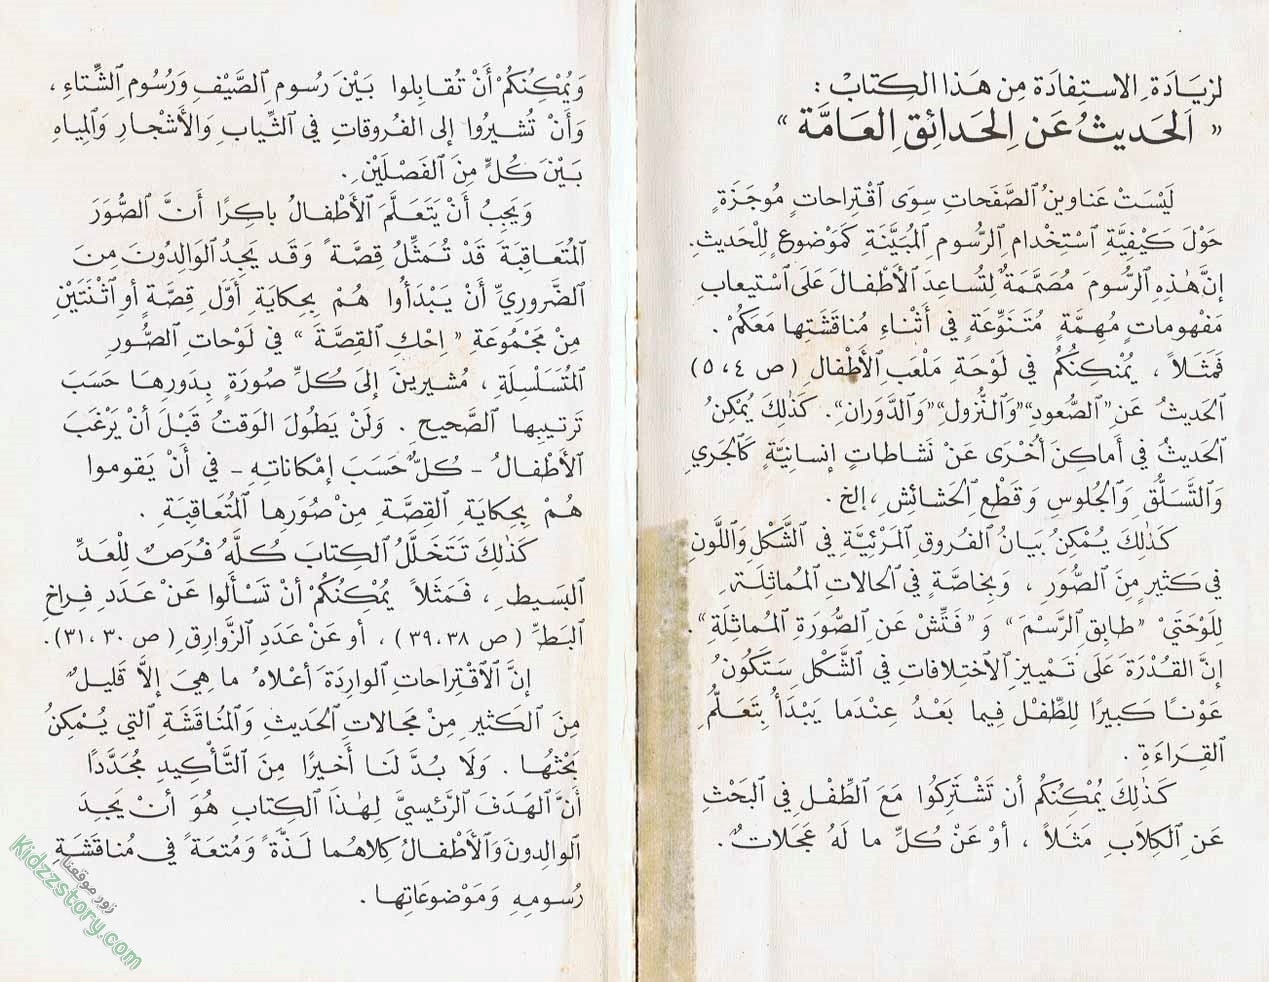 لزِيَادَةِ الاستِفادَة مِن هَذا الكِتابْ :
« اَلحَديثُ عَنِ الحَدائِقِ العَامَّة »
لَيْسَتْ عَناوينُ ٱلصَّفَحاتِ سِوَى ٱقْتِراحاتٍ مُوجَزَةٍ
حَوْلَ كَيْفِيَّةِ ٱسْتِخْدامِ ٱلرُّسومِ ٱلمُبَيَّنَةِ كَمَوْضوعٍ لِلْحَديثِ.
إنَّ هٰذِهِ ٱلرُّسومَ مُصَمَّمَةٌ لِتُساعِدَ ٱلأَطْفالَ عَلَى ٱسْتيعابِ
مَفْهوماتٍ مُهِمَّةٍ مُتَنَوِّعَةٍ في أَثْناءِ مُناقَشَتِها مَعَكُمْ .
فَمَثَلاً ، يُمْكِنُكُمْ في لَوْحَةِ مَلْعَبِ ٱلأَطْفالِ ( ص ٤ ، ٥ )
ٱلحَديثُ عَنِ "ٱلصُّعودِ" "وَٱلنُّزولِ" "وَٱلدَّوَرانِ". كَذٰلِكَ يُمْكِنُ
ٱلحَديثُ في أَماكِنَ أُخْرَى عَنْ نَشاطاتٍ إنسانِيَّةٍ كَٱلجَريِ
وَٱلتَّسَلُّقِ وَٱلجُلوسِ وَقَطْعِ ٱلحَشائشِ ، إلخ .
كَذٰلِكَ يُمْكِنُ بَيانُ ٱلفُروقِ ٱلمَرْئِيَّةِ في ٱلشَّكْلِ وَٱللَّونِ
في كَثيرٍ مِنَ ٱلصُّوَرِ ، وَبِخاصَّةٍ في ٱلحالاتِ ٱلمُماثِلَةِ
لِلَوْحَتَيْ " طابِقِ ٱلرَّسْمَ " وَ " فَتِّشْ عَنِ ٱلصُّورَةِ ٱلمُماثِلَةِ ".
إنَّ ٱلقُدْرَةَ عَلَى تَمْييزِ ٱلاخْتِلافاتِ في ٱلشَّكْلِ سَتَكُونُ
عَوْنًا كَبيرًا لِلطِّفْلِ فيما بَعْدُ عِنْدَما يَبْدَأُ بِتَعَلُّمِ
ٱلقِراءَةِ .
كَذٰلِكَ يُمْكِنُكُم أن تَشْتَرِكُوا مَعَ ٱلطِّفْلِ في ٱلبَحْثِ
عَنِ ٱلكِلابِ مَثَلاً ، أوْ عَنْ كُلِّ ما لَهُ عَجَلاتٌ .
وَيُمْكِنُكُمْ أَنْ تُقابِلوا بَيْنَ رُسومِ ٱلصَّيْفِ وَرُسُومِ ٱلشِّتاءِ ،
وَأَنْ تُشيرُوا إلى ٱلفُروقاتِ في ٱلثِّيابِ وَٱلأَشْجارِ وَٱلمِياهِ
بَيْنَ كُلٍّ مِنَ ٱلفَصْلَيْنِ .
وَيَجِبُ أَنْ يَتَعَلَّمَ ٱلأَطْفالُ باكِرًا أَنَّ ٱلصُّوَرَ
ٱلمُتعاقِبَةَ قَدْ تُمَثِّلُ قِصَّةً وَقَد يَجِدُ ٱلوَالِدُونَ مِنَ
ٱلضَّروريِّ أَنْ يَبْدَأوا هُمْ بِحِكايَةِ أَوَّلِ قِصَّةٍ أو ٱثْنَتَيْنِ
مِنْ مَجْمُوعَةِ " اِحْكِ ٱلقِصَّةَ " في لَوْحاتِ ٱلصُّوَرِ
ٱلمُتَسَلْسِلَةِ ، مُشيرينَ إلَى كُلِّ صُورَةٍ بِدَورِها حَسَبَ
تَرتيبِها ٱلصَّحيحِ . وَلَنْ يَطُولَ ٱلوَقتُ قَبْلَ أَنْ يَرْغَبَ
ٱلأَطْفالُ - كُلٌّ حَسَبَ إمْكاناتِهِ - في أَنْ يَقوموا
هُمْ بِحِكايَةِ ٱلقِصَّةِ مِنْ صُوَرِها ٱلمُتَعاقِبَةِ .
كَذٰلِكَ تَتَخَلَّلُ ٱلكِتابَ كُلَّهُ فُرَصٌ لِلْعَدِّ
ٱلبَسيطِ ، فَمَثَلاً يُمْكِنُكُمْ أنْ تَسْأَلوا عَنْ عَدَدِ فِراخِ
ٱلبَطِّ ( ص ٣٨ ، ٣٩ ) ، أو عَنْ عَدَدِ ٱلزَّوارِقِ ( ص ٣٠ ، ٣١ ).
إنَّ ٱلاقْتِراحاتِ ٱلوارِدَةَ أعْلاهُ ما هِيَ إلاَّ قَليلٌ
مِنَ ٱلكَثيرِ مِنْ مَجالاتِ ٱلحَديثِ وَٱلمُناقَشَةِ ٱلتي يُمْكِنُ
بَحْثُها . وَلَا بُدَّ لَنا أَخيرًا مِنَ ٱلتَّأْكيدِ مُجَدَّدًا
أَنَّ ٱلهَدَفَ ٱلرَّئيسيَّ لِهٰذا ٱلكِتابِ هُوَ أَنْ يَجِدَ
ٱلوالِدونَ وَٱلأَطْفالُ كِلاهُما لَذَّةً وَمُتعَةً في مُناقَشَةِ
رُسومِهِ وَمَوْضوعَاتِها .
زور موقعنا
Kidzzstory.com